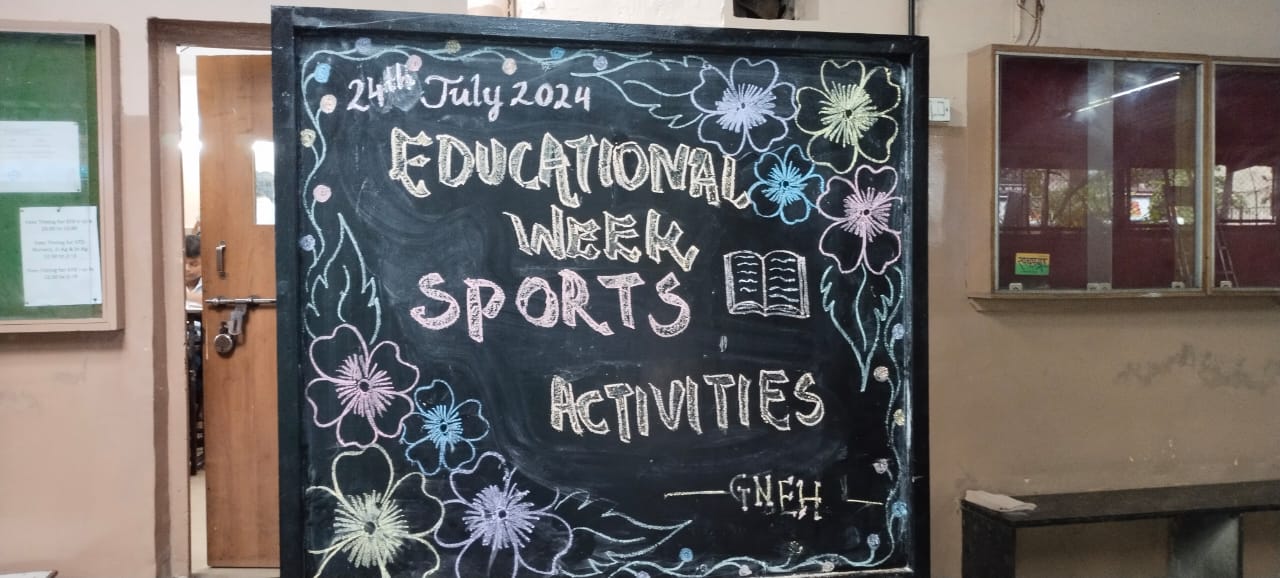 24th July 2024
EDUCATIONAL
WEEK
SPORTS
ACTIVITIES
— GNEH —